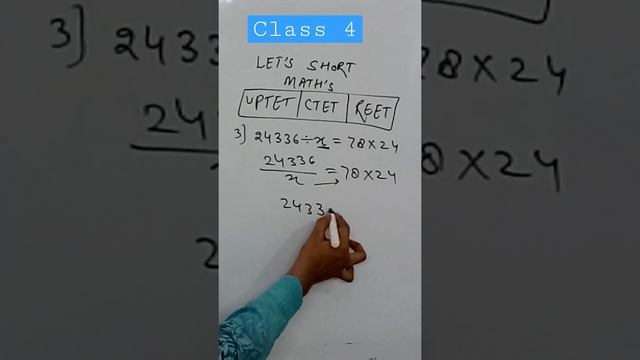 Class 4
LET'S SHORT
MATH'S
UPTET CTET REET
3) 24336 ÷ x = 78 × 24
24336/x = 78 × 24
2433